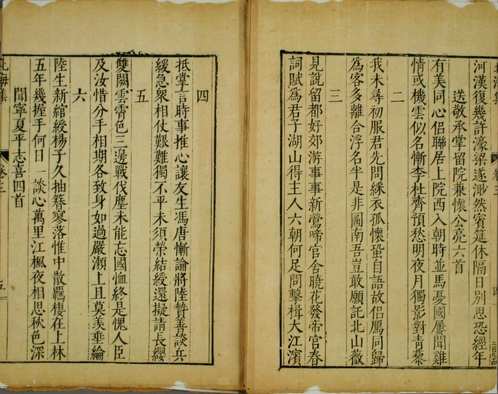 河漢復幾許濠梁遂渺然賓筵休隔日別恩恐經年
送敬承掌留院兼懷公亮六首
有美同心侶聯居上院西入朝時並馬憂國屢聞雞
情或機雲似名慚李杜齊預愁明夜月獨影對青藜
二
我未尋初服君先問綵衣孤懷蛩自語故侶鴈同歸
為客多離合浮名半是非國南吾豈敢願託北山薇
三
見說留都好郊游事事新鶯啼官舍曉花發帝宮春
詞賦為君子湖山得主人六朝何足問擊楫大江濱
四
抵掌言時事推心讓友生馮唐慚論將陸贄善談兵
緩急衆相仗艱難獨不平未須榮結綬還擬請長纓
五
雙闕雲霄色三邊戰伐塵未能忘國恤終是愧人臣
及汝惜分手相期各致身如過嚴瀨上且莫羨垂綸
六
陸生新綰綬楊子久抽簪寥落惟中散羈棲在上林
五年幾握手何日一談心萬里江楓夜相思秋色深
聞寧夏平志喜四首
卷三
五